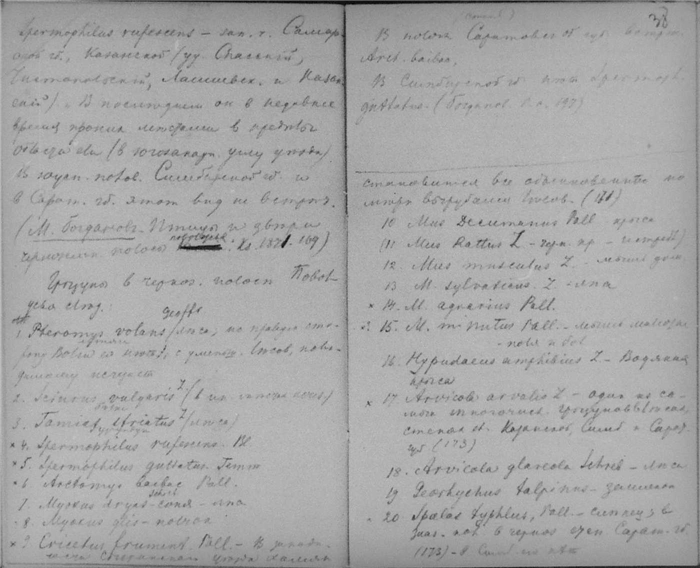 Spermophilus rufescens – зап. ч. Самар-
ской гб, Казанской (уу. Спасский,
Чистопольский, Лаишевск. и Казан-
ский). В последнем он в недавнее
время проник в пределы
(в югозападн. углу уезда)
В нагорн. полов. Симбирской гб. и
в Сарат. гб. этот вид не встреч.
(М. Богданов. Птицы и звери
чернозем. полосы поволжья. 1871. 169)
Грызуны в черноз. полосы Повол-
жья след:
1. Pteromys volans (леса, по правую сто-
рону Волги нет), с уменьш. лесов, пови-
димому исчезает
2. Sciurus vulgaris L (в
3. Tamias striatus L (леса)
× 4. Spermophilus rufescens Bl
× 5. Spermophilus guttatus Temm
× 6. Arctomys baibac Pall.
7. Myoxus dryas – соня – лса
8. Myoxus glis – полчок
× 9 Cricetus frument. Pall. – В
38
В полосе Саратовской губ. встреч.
Arct. baibac.
В Симбирской гб. нет Spermoph.
guttatus. (Богданов 197)
становится все обыкновеннее по
мере вырубания лесов. (171)
10 Mus Decumanus Pall – крыса
11 Mus Rattus L – черн. кр –
12 Mus musculus L – мышь дом
13 M. sylvaticus L – лса
× 14. M. agrarius Pall.
? 15. M. minutus Pall. – мышь малютка
поля и лов
16. Hypudaeus amphibius L – Водяная
крыса
× 17 Arvicola arvalis L – один из са-
мых многочисл. грызунов в лесах,
степях гб. Казанской, Симб и Сарат.
губ (173)
18. Arvicola glareola Schreb – леса
19 Georhychus talpinus – землянка
× 20. Spalax typhlus, Pall – слепец в
черноз степ Сарат. гб.
(173) – в Симб. гб нет